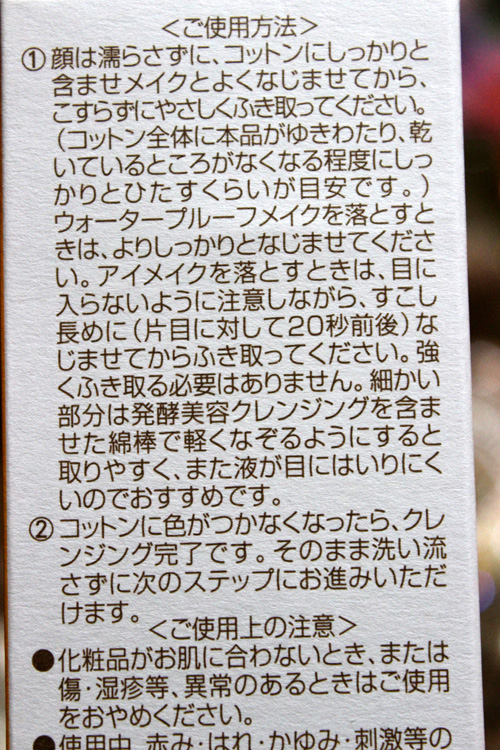 ＜ご使用方法＞
①顔は濡らさずに、コットンにしっかりと
含ませメイクとよくなじませてから、
こすらずにやさしくふき取ってください。
（コットン全体に本品がゆきわたり、乾
いているところがなくなる程度にしっ
かりとひたすくらいが目安です。）
ウォータープルーフメイクを落とすと
きは、よりしっかりとなじませてくださ
い。アイメイクを落とすときは、目に
入らないように注意しながら、すこし
長めに（片目に対して20秒前後）な
じませてからふき取ってください。強
くふき取る必要はありません。細かい
部分は発酵美容クレンジングを含ま
せた綿棒で軽くなぞるようにすると
取りやすく、また液が目にはいりにく
いのでおすすめです。
②コットンに色がつかなくなったら、クレ
ンジング完了です。そのまま洗い流
さずに次のステップにお進みいただ
けます。
＜ご使用上の注意＞
●化粧品がお肌に合わないとき、または
傷・湿疹等、異常のあるときはご使用
をおやめください。
●使用中、赤み・はれ・かゆみ・刺激等の